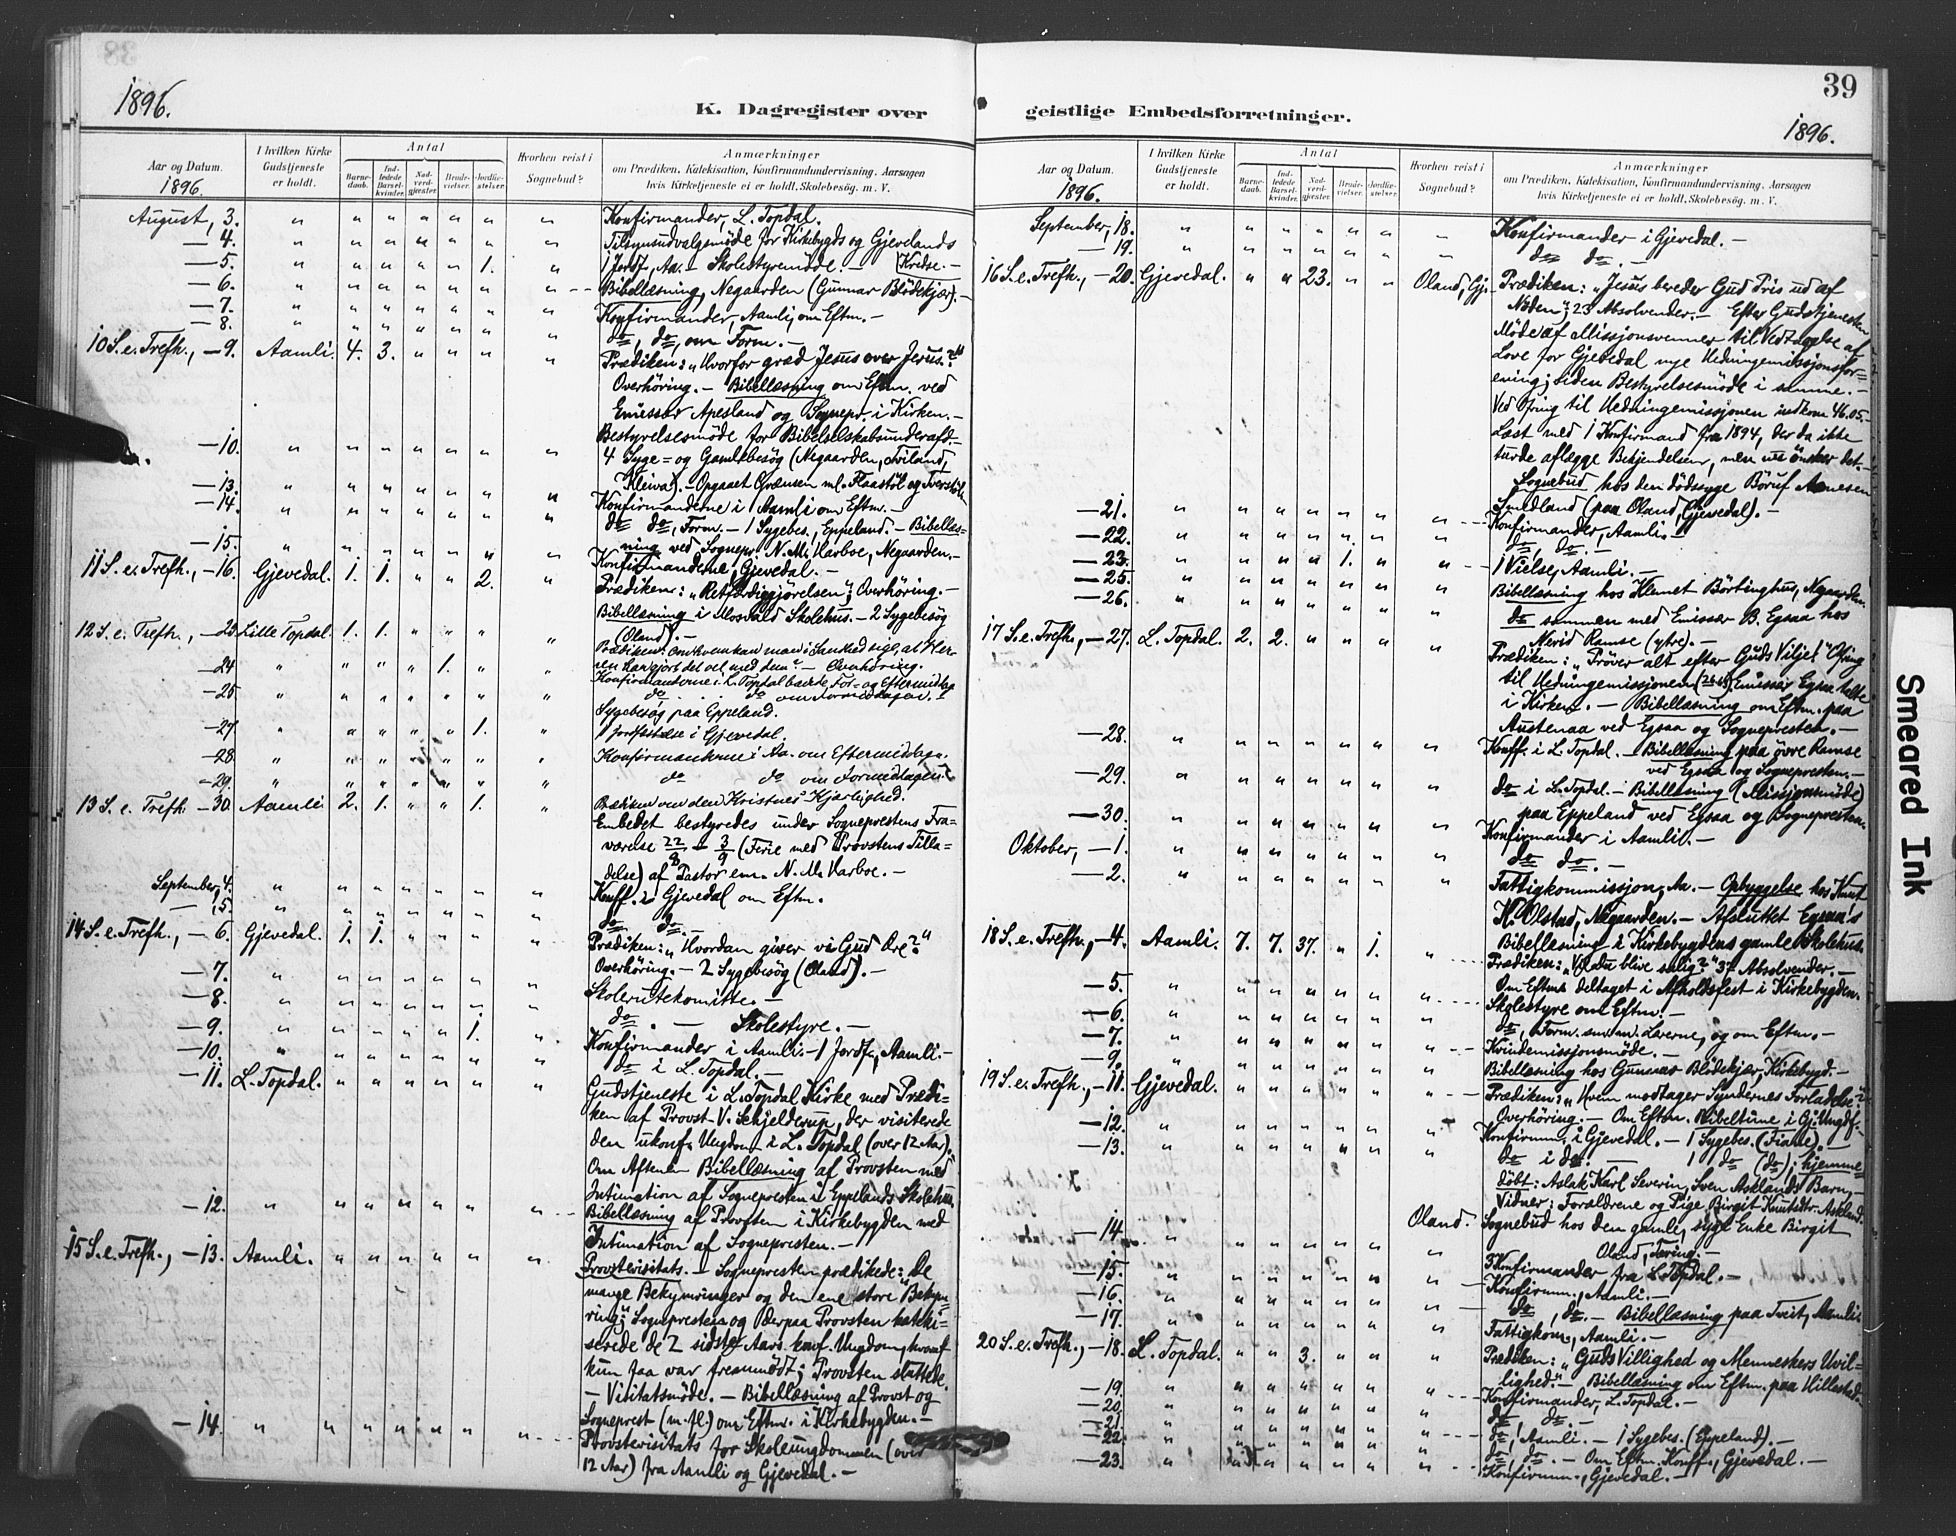 39
1896.
K. Dagregister over
Aar og Datum.
1896.
I hvilken Kirke Gudstjeneste er holdt.
Antal
Barnedaab.
Indledede Barselkvinder.
Nadverdgjester.
Brudevielser.
Jordfæstelser.
Hvorhen reist i Sognebud?
Anmærkninger
om Prædiken, Katekisation, Konfirmandundervisning, Aarsagen
hvis Kirketjeneste ei er holdt. Skolebesøg. m. V.
August, 3. " " " " " " " Konfirmander, L. Topdal.
— 4. " " " " " " " Tilsynsudvalgsmöde for Kirkebygds og Gjevedals
— 5. " " " " " 1. " 1 Jordf., Aa. — Skolestyremöde. — Kredse. —
— 6. " " " " " " " Bibellæsning, Negaarden (Gunnar Blödekjær). —
— 7. " " " " " " " Konfirmander, Aamli, om Eftm. —
— 8. " " " " " " " do, do, om Form. —
10 S. e. Trefh., — 9. Aamli. 4. 3. " " " " Prædiken: "Hvorfor græd Jesus over Jerus.?"
Overhöring. — Bibellæsning om Eftm. ved
Emissær Apesland og Sognepr. i Kirken. —
— 10. " " " " " " " Bestyrelsesmöde for Bibelselskabsunderafd. —
4 Syge= og Gamlebesög (Negaarden, Friland,
— 13. " " " " " " " Kleiva). — Opgaaet Grænsen ml.
— 14. " " " " " " " Konfirmanderne i Aamli om Eftm. —
do do, Form. — 1 Sygebes., Eppeland. — Bibellæs=
— 15. " " " " " " " ning ved Sognepr. N. M. Harboe, Negaarden. —
Konfirmanderne, Gjevedal. —
11 S. e. Trefh., — 16. Gjevedal. 1. 1. " " 2. " Prædiken: "Retfærdiggjörelsen"; Overhöring. —
Bibellæsning i Mosvald Skolehus. — 2 Sygebesög
(Oland). —
12 S. e. Trefh., — 23. Lille Topdal. 1. 1. " " " " Prædiken: Om hvem kan man i Sandhed sige, at Her-
ren har gjort det vel med dem? — Overhöring.
— 24 " " " " 1. " " Konfirmanderne i L. Topdal baade For- og Eftermiddag
— 25 " " " " " " " do do om Formiddagen. —
Sygebesög paa Eppeland.
— 27. " " " " " 1. " 1 Jordfæstelse i Gjevedal.
— 28. " " " " " " " Konfirmanderne i Aa. om Eftermiddagen.
— 29. " " " " " " " do do om Formiddagen.
13 S. e. Trefh. — 30. Aamli 2. 1. " " 1. " Prædiken om den Kristnes Kjærlighed.
Embedet bestyredes under Sogneprestens Fra=
værelse 22/8 — 3/9 (Ferie med Provstens Tilla=
delse) af Pastor em. N. M. Harboe. —
September, 4. " " " " " " " Konff. i Gjevedal om Eftm.
— 5. " " " " " " " do. do. —
14 S. e. Trefh., — 6. Gjevedal. 1. 1. " " " " Prædiken: "Hvordan giver vi Gud Ære?"
Overhöring. — 2 Sygebesög (Oland). —
— 7. " " " " " " " Skolerutekomitte. —
— 8. " " " " " " " do. — Skolestyre. —
— 9. " " " " " 1. " Konfirmander i Aamli. — 1 Jordf., Aamli. —
— 10. " " " " " " " do i L. Topdal. —
— 11. L. Topdal. " " " " " " Gudstjeneste i L. Topdal Kirke med Prædi=
ken af Provst V. Schjelderup, der visiterede
den ukonf. Ungdom i L. Topdal (over 12 Aar).
Om Aftenen Bibellæsning af Provsten med
Intimation af Sognepresten i Eppelands Skolehus.
— 12. " " " " " " " Bibellæsning af Provsten i Kirkebygden med
Intimation af Sognepresten. —
15 S. e. Trefh., — 13. Aamli. " " " " " " Provstevisitats. — Sognepresten prædikede: "De
mange Bekymringer og den ene store Bekym=
ring." Sognepresten og derpaa Provsten kateki=
serede de 2 sidste Aars konf. Ungdom, hvoraf
kun faa var fremmödt; Provsten sluttede.
— Visitatsmöde. — Bibellæsning af Provst og
Sogneprest (m. fl.) om Eftm. i Kirkebygden. —
— 14. " " " " " " " Provstevisitats for Skoleungdommen (over
12 Aar) fra Aamli og Gjevedal. —
geistlige Embedsforretninger.
1896.
Aar og Datum.
1896.
I hvilken Kirke Gudstjeneste er holdt.
Antal
Barnedaab.
Indledede Barselkvinder.
Nadverdgjester.
Brudevielser.
Jordfæstelser.
Hvorhen reist i Sognebud?
Anmærkninger
om Prædiken, Katekisation, Konfirmandundervisning, Aarsagen
hvis Kirketjeneste ei er holdt. Skolebesøg m. V.
September, 18. " " " " " " " Konfirmander i Gjevedal. —
— 19. " " " " " " " do do. —
16 S. e. Trefh., — 20. Gjevedal. " " 23. " " Oland, Gj. Prædiken: "Jesus bereder Gud Pris ud af
Nöden"; 23 Absolvender. — Efter Gudstjenesten
Möde af Missionsvenner til Vedtagelse af
Love for Gjevedal nye Hedningemissjonsfor=
ening; siden Bestyrelsesmöde i samme. —
Ved Ofring til Hedningemissjonen indkom 46.05.
Læst med 1 Konfirmand fra 1894, der da ikke
turde aflægge Bekjendelsen, men nu önsker det. —
Sognebud hos den dödssyge Böruf Aanesen
Smeland (paa Oland, Gjevedal). —
— 21. " " " " " " " Konfirmander, Aamli. —
— 22. " " " " " " " do, do. —
— 23. " " " " 1. " " 1 Vielse, Aamli. —
— 25. " " " " " " " Bibellæsning hos Klemet Börtinghus, Negaarden.
— 26. " " " " " " " do sammen med Emissær B. Egsaa hos
Ramse (ytre). —
17 S. e. Trefh., — 27. L. Topdal. 2. 2. " " " " Prædiken: "Pröver alt efter Guds Vilje!" Ofring
til Hedningemissjonen Emissær Egsaa talte
i Kirken. — Bibellæsning om Eftm. paa
Austenaa ved Egsaa og Sognepresten. —
— 28. " " " " " " " Konff. i L. Topdal. — Bibellæsning paa övre Ramse
ved Egsaa og Sognepresten. —
— 29. " " " " " " " do i L. Topdal. — Bibellæsning (Missjonsmöde)
paa Eppeland ved Egsaa og Sognepresten.
— 30. " " " " " " " Konfirmander i Aamli. —
Oktober, — 1. " " " " " " " do do. —
— 2. " " " " " " " Fattigkommissjon, Aa. — Opbyggelse hos Knut
K. Olstad, Negaarden. — Afsluttet Egsaa's
Bibellæsning i Kirkebygdens gamle Skolehus.
18 S. e. Trefh., — 4. Aamli. 7. 7. 37. " 1. " Prædiken: "Vil du blive salig?" 37 Absolvender. —
Om Eftm. deltaget i Afholdsfest i Kirkebygden.
— 5. " " " " " " " Skolestyre om Eftm. —
— 6. " " " " " " " do, Form. sm. m. Lærerne, og om Eftm. —
— 7. " " " " " " " Kvindemissjonsmöde. —
— 9. " " " " " " " Bibellæsning hos Gunnar Blödekjær, Kirkebygd. —
19 S. e. Trefh., — 11. Gjevedal. " " " " " " Prædiken: "Hvem modtager Syndernes Forladelse?"
Overhöring. — Om Eftm. Bibeltime i Gj. Ungdf. —
— 12. " " " " " " " Konfirmm. i Gjevedal. — 1 Sygebes. (Fiane). —
— 13. " " " " " " " do i do. — 1 do (do); hjemme=
döbt: Aslak Karl Severin, Sven Asklands Barn, —
Vidner: Forældrene og Pige Birgit Knutsdtr. Askland.
— 14. " " " " " " Oland. Sognebud hos den gamle, syge Enke Birgit
Oland, Tæring. —
— 15. " " " " " " " 3 Konfirmander fra L. Topdal. —
— 16. " " " " " " " Konfirmm., Aamli. —
do, do. — Bibellæsning paa Tveit, Aamli.
— 17. " " " " " " " Fattigkom., Aamli. —
20 S. e. Trefh., — 18. L. Topdal. " " 3. " " " Prædiken: "Guds Villighed og Menneskers Uvil=
lighed." — Bibellæsning om Eftm. paa Hillestad. —
— 19. " " " " " " " Konfirmander, L. Topdal. —
— 20. " " " " " " " do, do. —
— 21. " " " " " " " do, Aamli. — 1 Sygebes. (Eppeland). —
— 22. " " " " " " " do, do. — Om Eftm. Konff., Gjevedal. —
— 23. " " " " " " " Konfirmm., Gjevedal. —
Smeared Ink